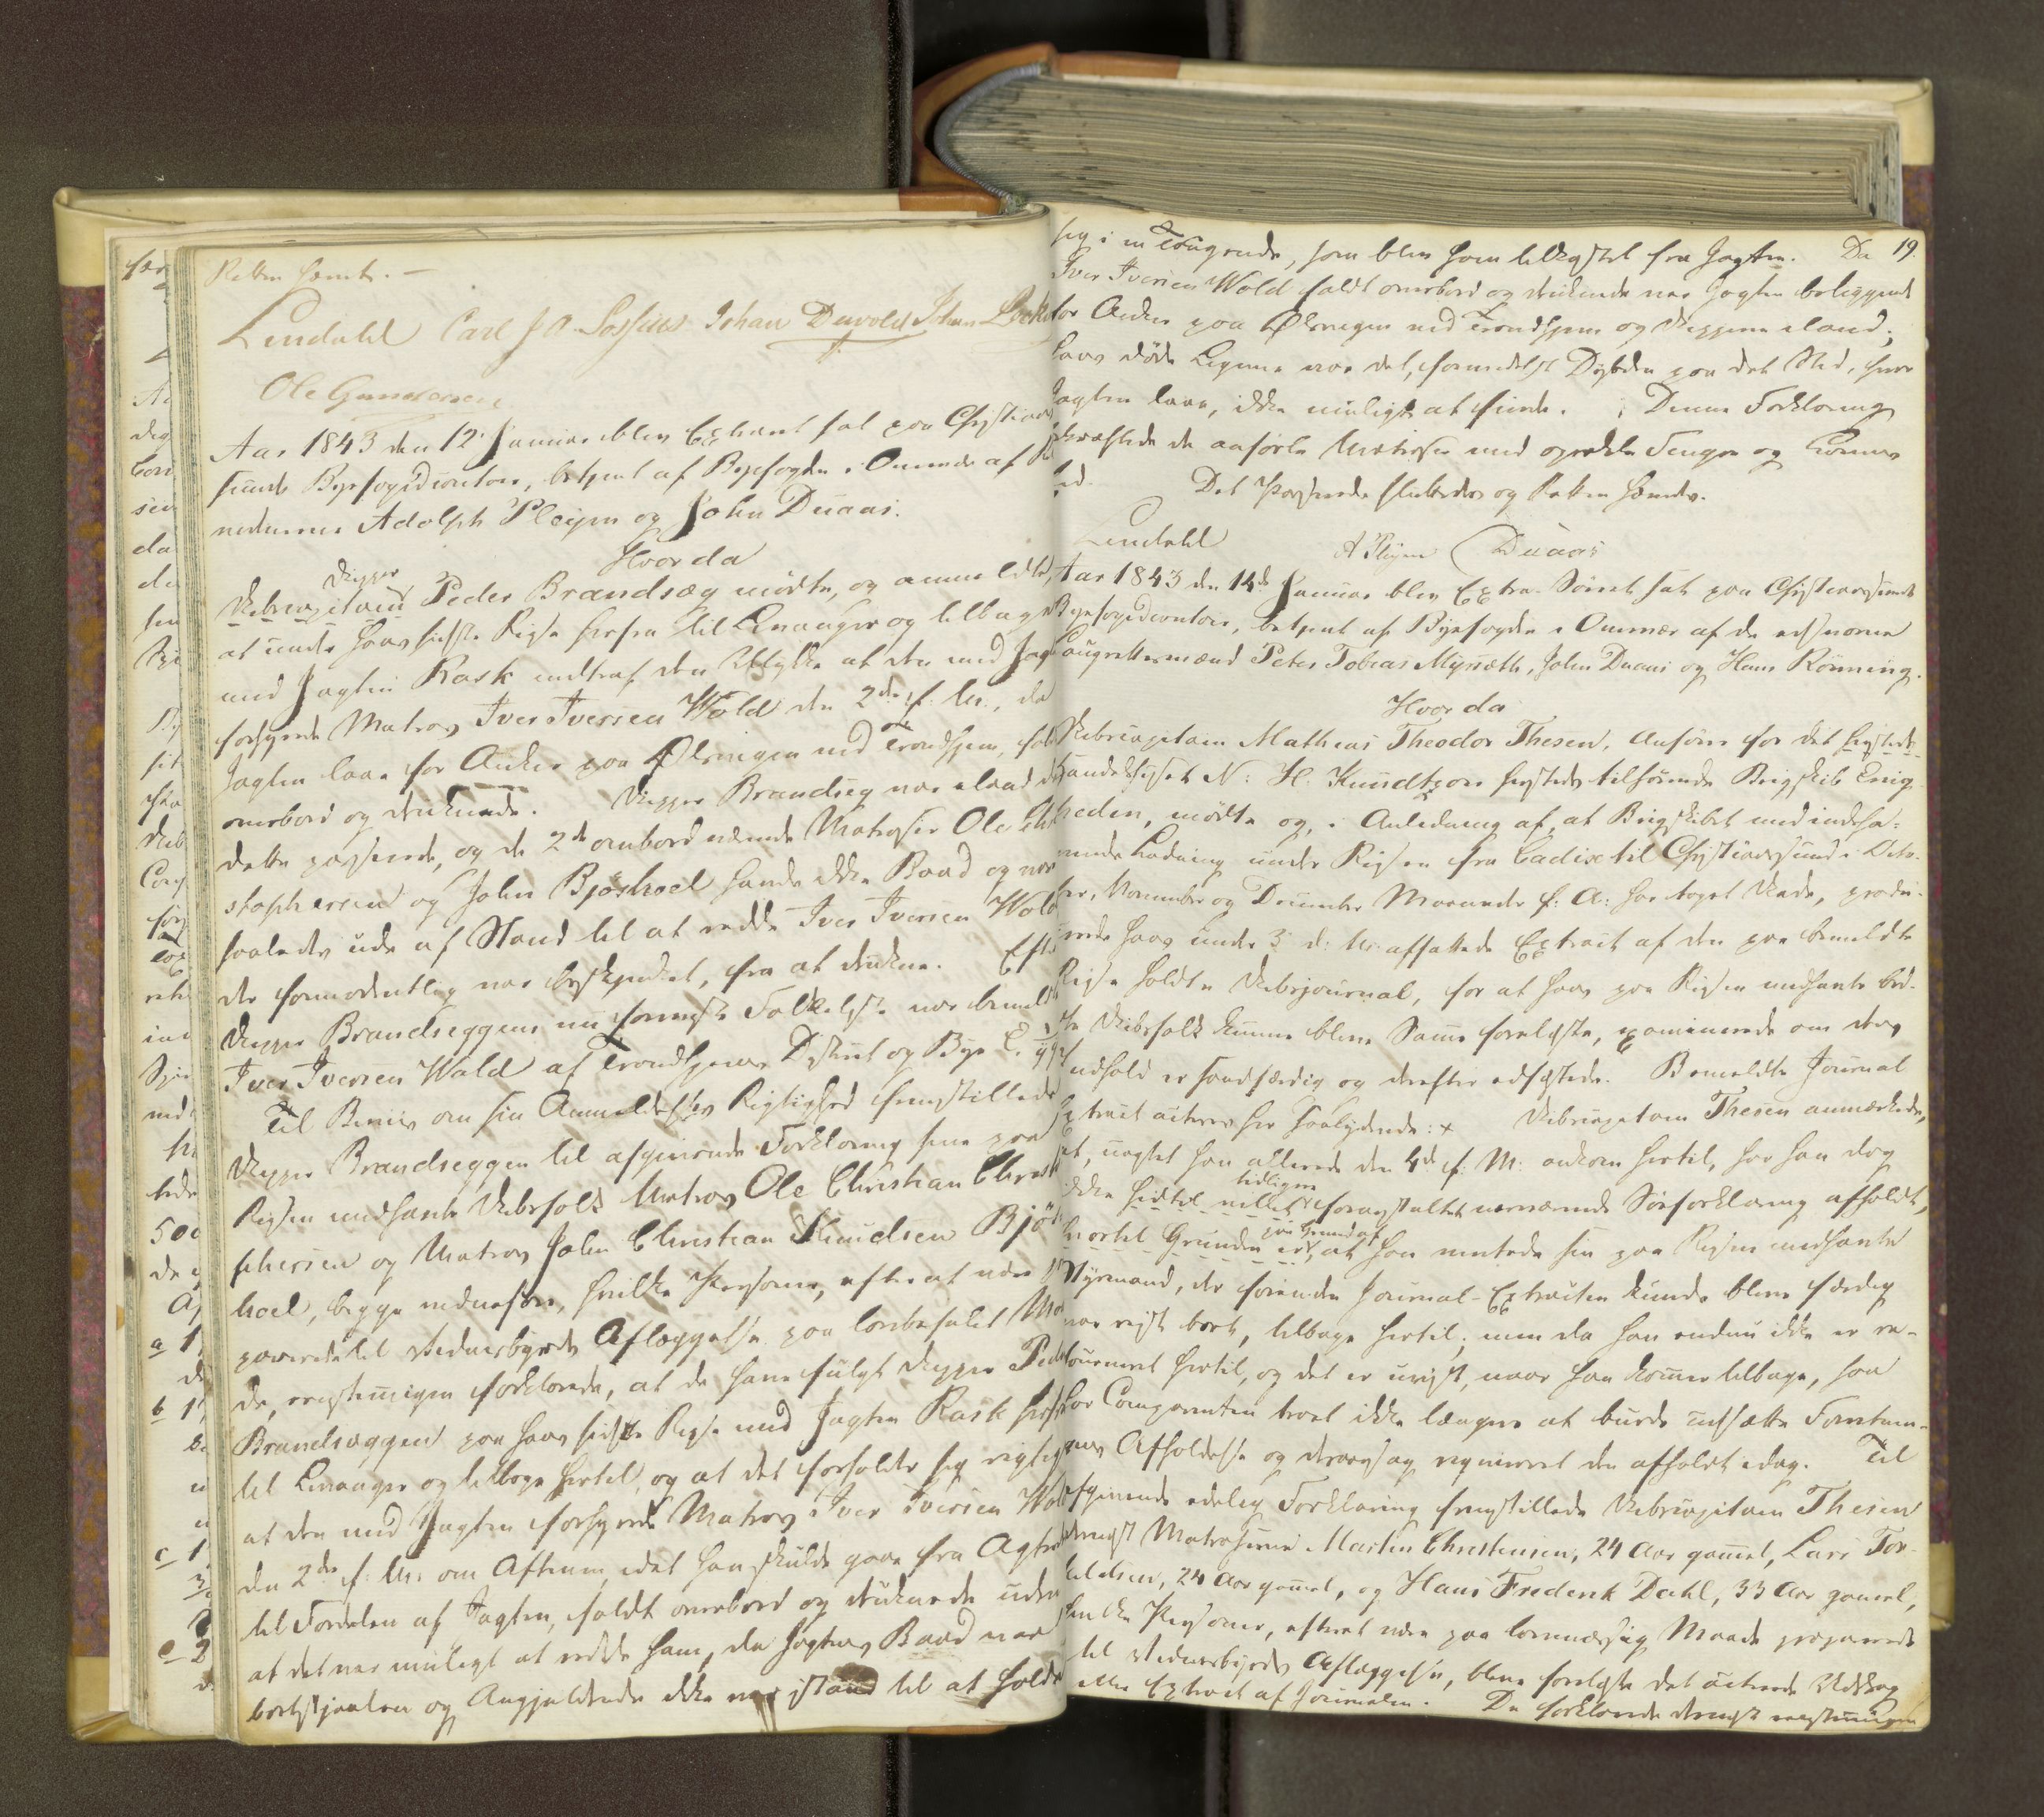 Retten hævet. –
Lindahl Carl J A. Johan Duvold Johan
Ole Gundersen
Aar 1843 den 12. Januar blev Extraret sat paa Christian
sunds Byefogedcontoir, betjent af Byefogden i Overvær af
nederne Adolph Pleym og John Duaas.
Hvorda
Skipper
Skibscapitain Peder Brandsæg mødte, og anmeldte,
at under hans sidste Reise herfra til Levanger og tilbage
med Jagten Rask indtraf den Ulykke at den med Jag
forhyrede Matros Iver Iversen Wold den 2den f. M., da
Jagten laae for Anker paa Ølsvigen ved Trondhjem, faldt
overbord og druknede. Skipper Brandseg var iland
dette passerede, og de 2de ombord værende Matroser Ole Chri
stophersen og John Bjøshoel havde ikke Baad og var
saaledes ude af Stand til at redde Iver Iversen Wold
der formodentlig var beskjenket, fra at drukne. Efter
Skipper Brandseggens nu foreviste Folkeliste var bemeldte
Iver Iversen Wold af Trondhjems District og Bye
Til Beviis om sin Anmeldelses Rigtighed fremstillede
Skipper Brandseggen til afgivende Forklaring sine paa
Reisen medhavte Skibsfolk Matros Ole Christian Christ
phersen og Matros John Christian Knudsen Bjös
hoel, begge vedneføre, hvilke Personer, efter at være
parerede til Vidnesbyrds Aflæggelse paa lovbefalet Maa
de, eenstemmigen forklarede, at de have fulgt Skipper Peder
Brandsæggen paa hans sidste Reise med Jagten Rask herfra
til Levanger og tilbage hertil, og at det forholdt sig rigtigt
at den med Jagten forhyrede Matros Iver Iversen Wold
den 2den f. M. om Aftenen, idet han skulde gaae fra Agter
til Fordelen af Jagten, faldt overbord og druknede uden
at det var muligt at redde ham, da Jagtens Baad var
bortstjaalen og Angjældende ikke var istand til at holde
19.
sig i en Tougende, som blev ham tilkastet fra Jagten. Da
Iver Iversen Wold faldt overbord og druknede var Jagten beliggende
for Anker paa Ølsvigen ved Trondhjem og Skipperen iland;
hans døde Legeme var det, formedelst Dybden paa det Sted, hvor
Jagten laae, ikke muligt at finde. Denne Forklaring
bekræftede de anførte Matroser med oprakte Fingre og Lovens
Eed. Det Passerede sluttedes og Retten hævedes.
Lindahl A Pleym Duaas
Aar 1843 den 14de Januar blev Extra-Søret sat paa Christianssunds
Byefogedcontoir, betjent af Byefogden i Overvær af de edsvorne
Laugrettesmænd Peter Tobias Myrseth, John Duaas og Hans Rönning.
Hvorda
Skibscapitain Mathias Theodor Thesen, Anfører for det herstedts
Handelshuset N: H: Knudtzon hersteds tilhørende Brigskib Enig-
heden, mødte og, i Anledning af, at Brigskibet med indeha-
vende Ladning under Reisen fra Cadix til Christianssund i Octo-
ber, November og December Maaneder f: A: har taget Skade, produ-
cerede hans under 3 d: M: affattede Extract af den paa bemeldte
Reise holdte Skibsjournal, for at hans paa Reisen medhavte bed-
ste Skibsfolk kunne blive Samme forelæste, examinerede om dens
Indhold er sandfærdig og derefter edfæstede. Bemeldte Journal
Extract acteres her saalydende: × Skibscapitain Thesen anmærkede,
at, uagtet han allerede den 4de f: M: ankom hertil, har han dog
tidligere
ikke hidtil villet foranstaltet nærværende Søforklaring afholdt,
paa Grund af
hvortil Grunden er, at han ventede sin paa Reisen medhavte
Styrmand, der førend Journal-Extracten kunde blive færdig
var reist bort, tilbage hertil; men da han endnu ikke er re-
tourneret hertil, og det er uvist, naar han kommer tilbage, saa
har Comparenten troet ikke længere at burde udsætte Forretnin-
gens Afholdelse og deraarsag reqvireret den afholdt idag. Til
afgivende edelig Forklaring fremstillede Skibscapitain Thesen
dernæst Matroserne Martin Christensen, 24 Aar gammel, Lars Tor-
kildsen, 24 Aar gammel, og Hans Frederik Dahl, 33 Aar gammel,
hvilke Personer, efterat være paa lovmæssig Maade præparerede
til Vidnesbyrds Aflæggelse, bleve forelæste det acterede Uddrag
eller Extract af Journalen. De forklarede dernæst eenstemmigen